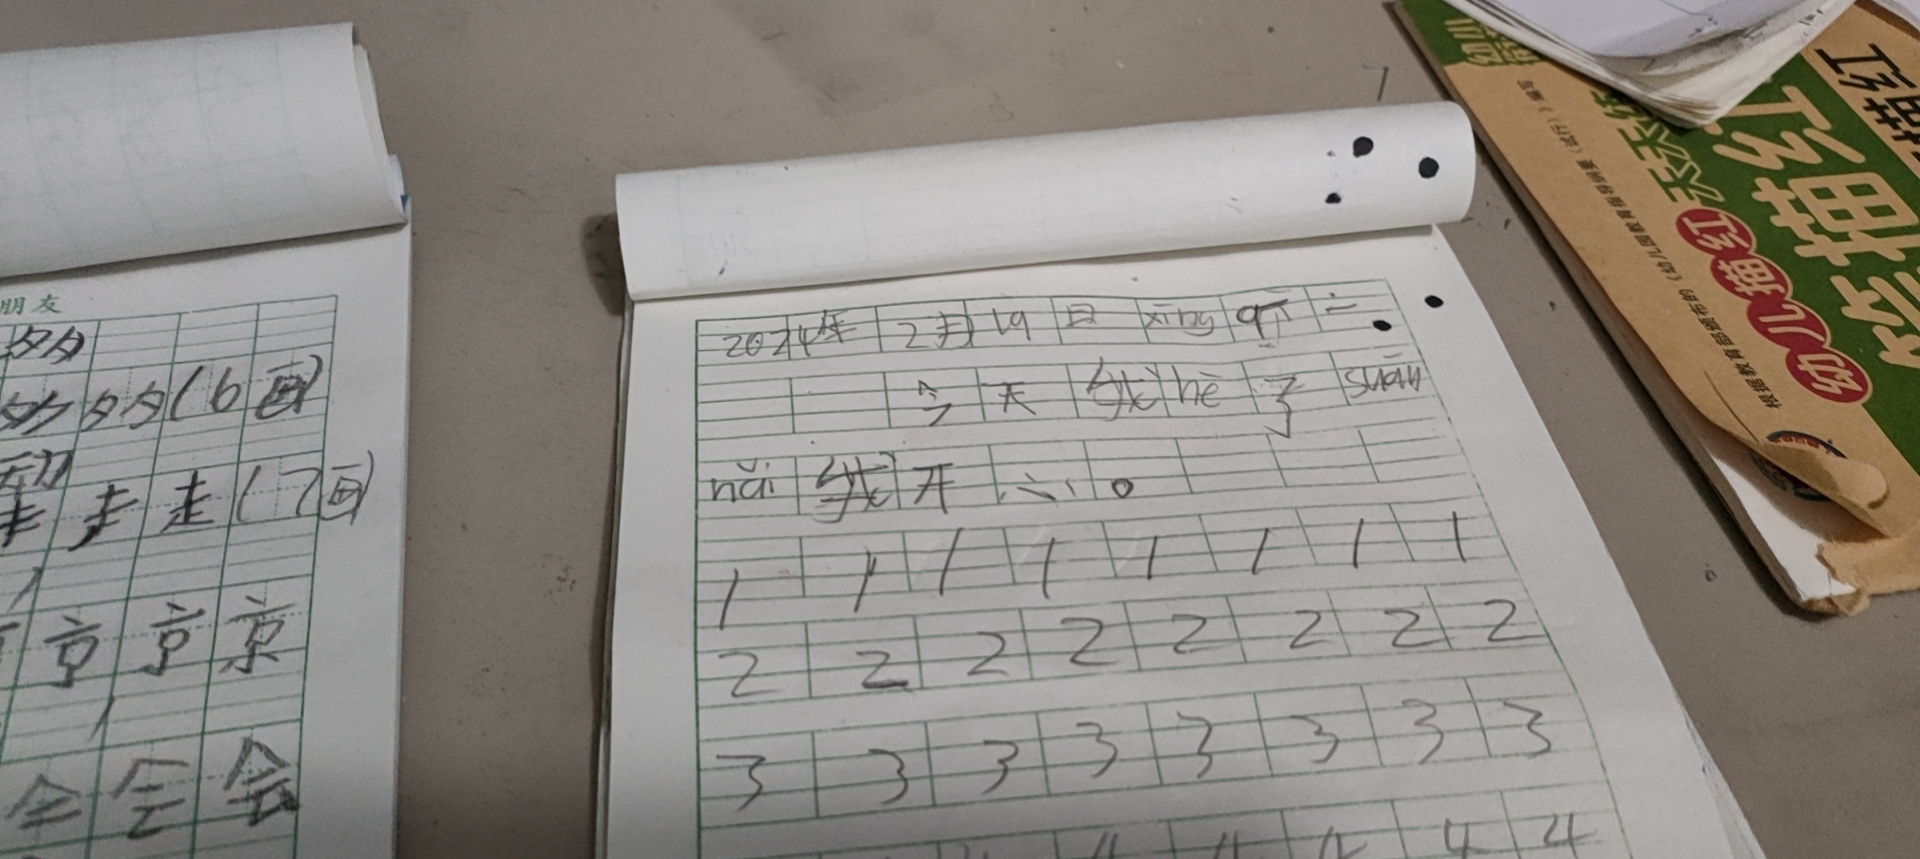 朋友
夕夕
夕夕 夕夕 (6画)
走 走 走 (7画)
京 京 京
会 会 会
2024年 2月 19日 xīng qī 二
今天我 hē 了 suān
nǎi 我开心。
1 1 1 1 1 1 1 1
2 2 2 2 2 2 2 2
3 3 3 3 3 3 3 3
4 4 4 4 4
幼儿
描红
天天练
幼儿描红
根据教育部颁布的《幼儿园教育指导纲要(试行)》编写